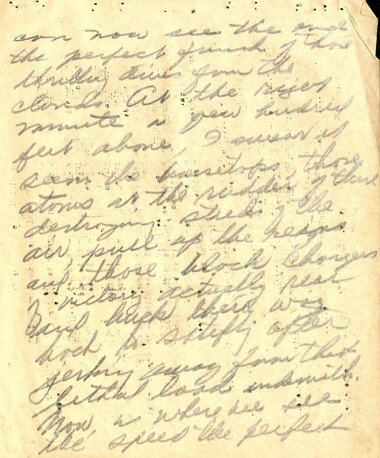 can now see the end
the perfect finish of those
thrilling dives from the
clouds. At the
minute a few hundred
feet above, I swear it
seems the housetops, those
atoms at the rudder of there
destroying steeds of the
air, pull up the reins
and those black chargers
of victory actually rear
and buck there way
back to safety after
jerking away from their
lethal load
Now, is where we see
the speed the perfect